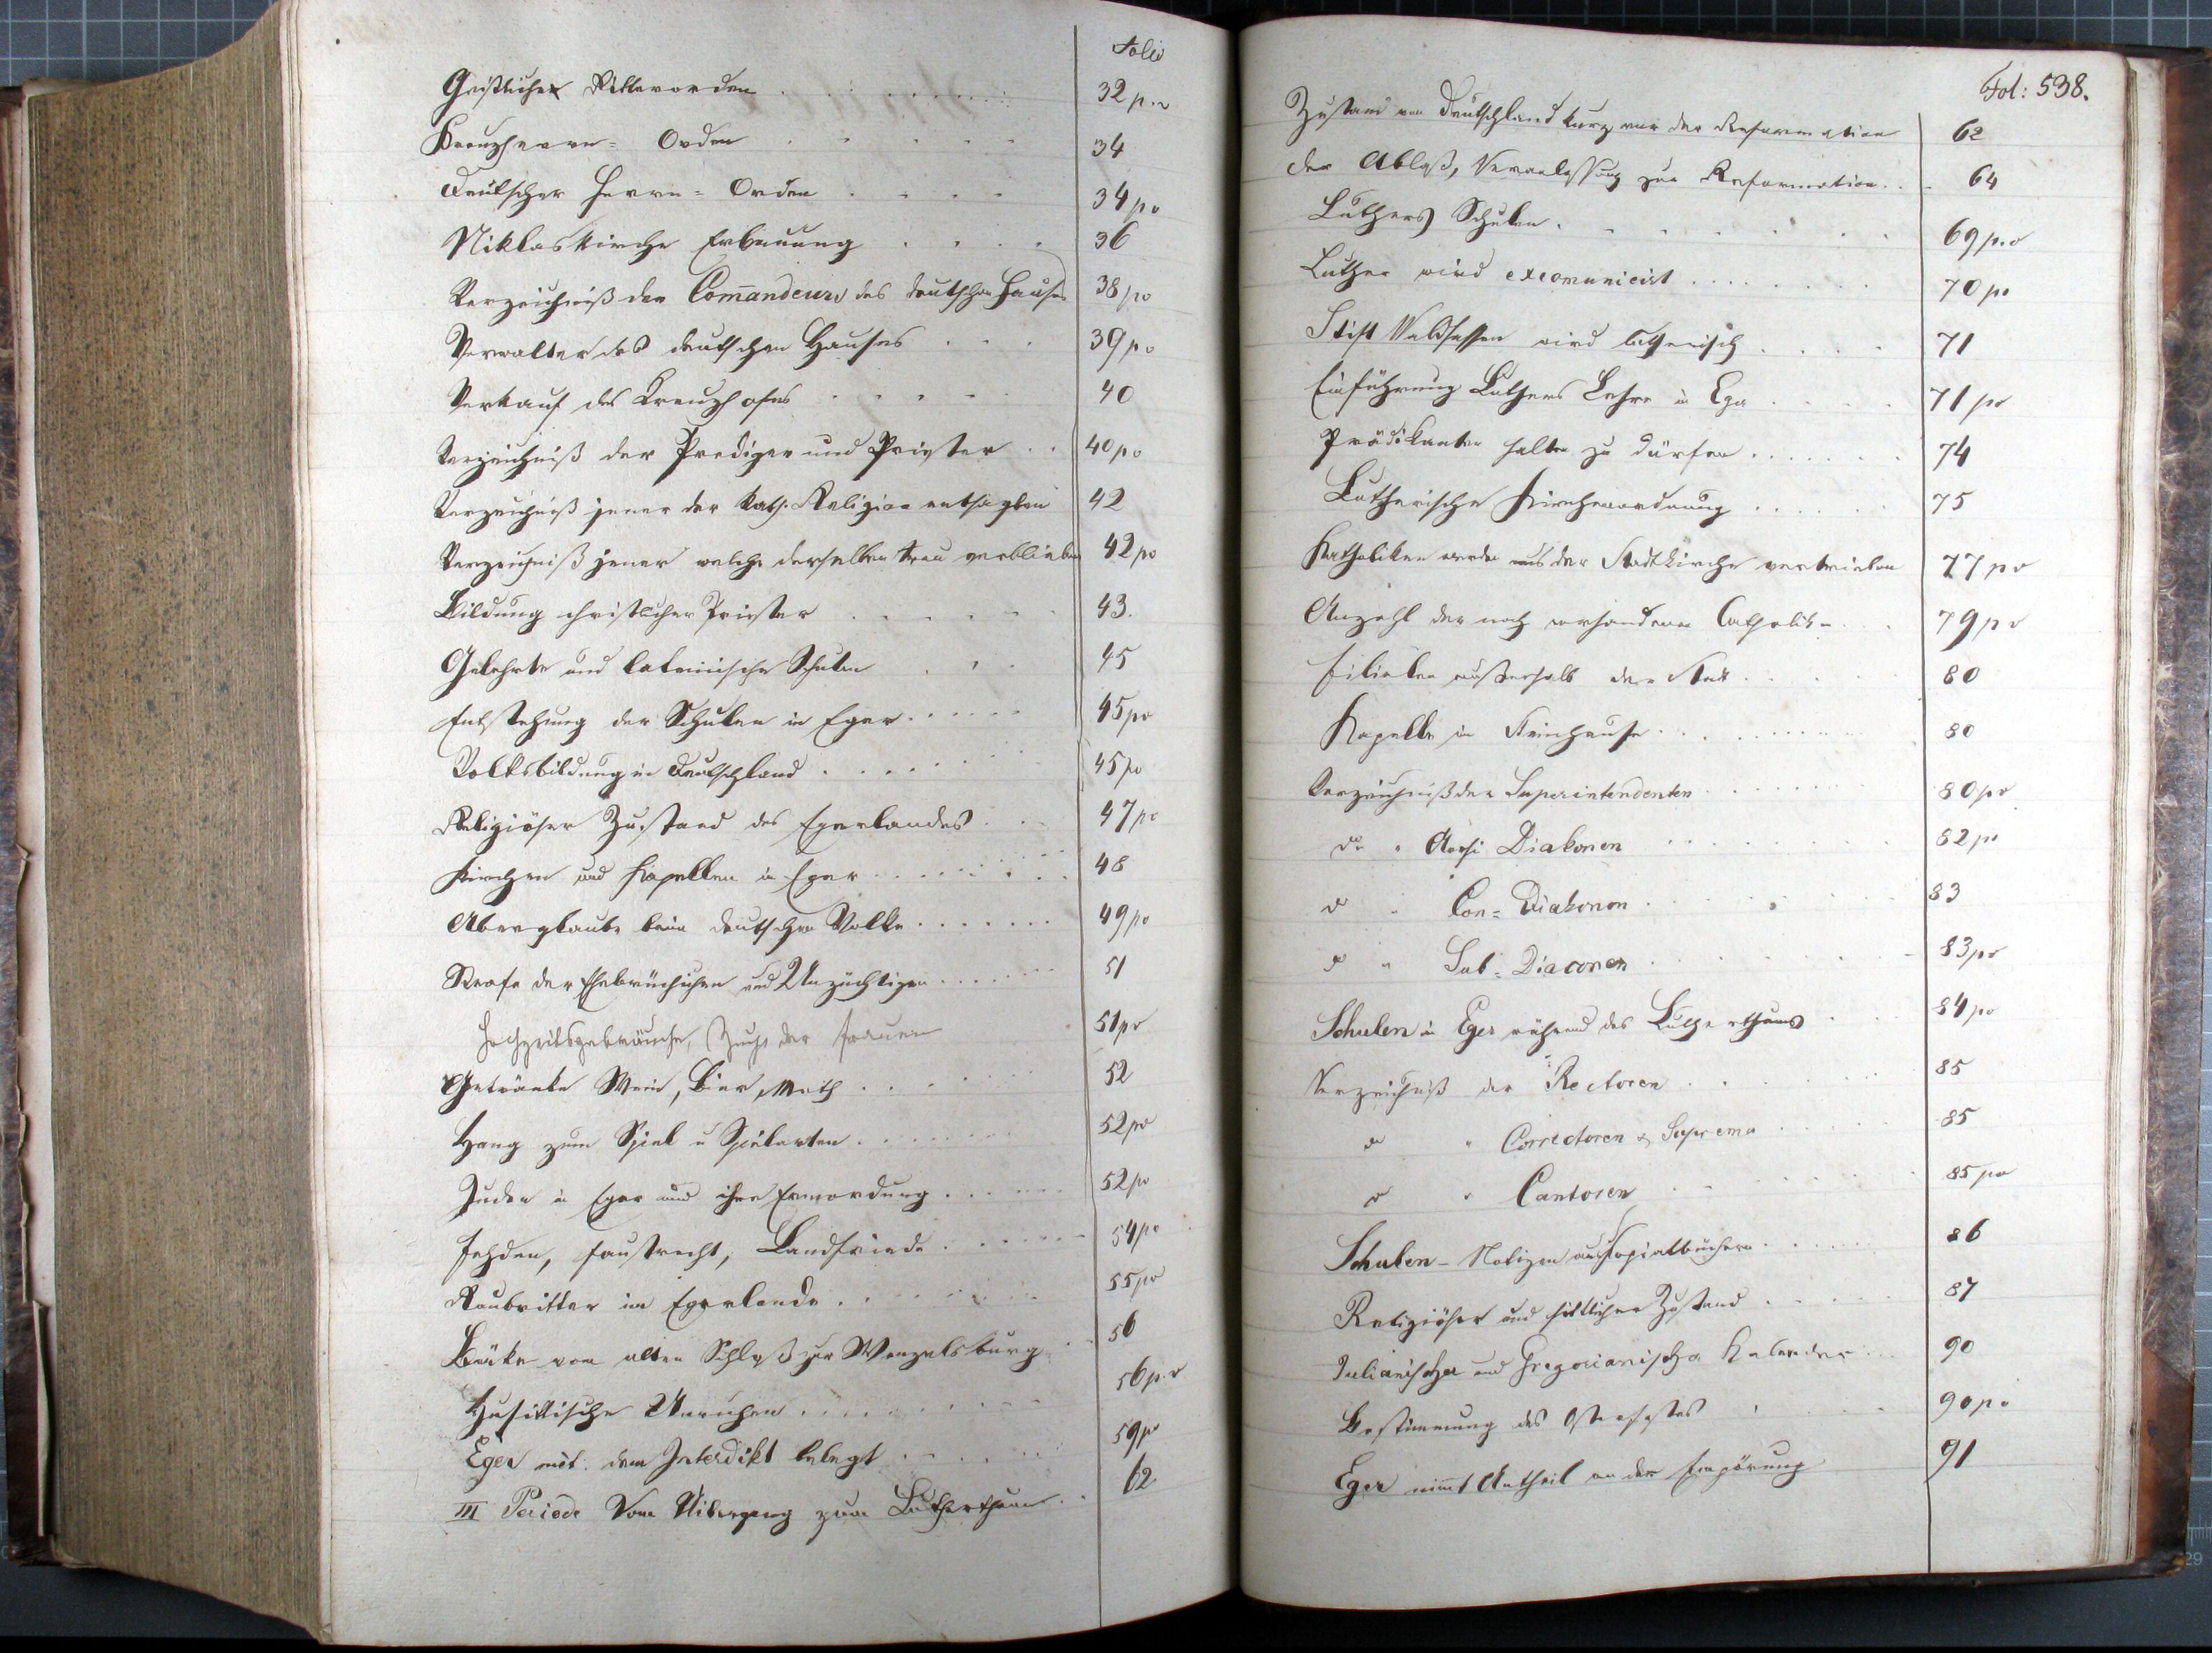 Folio
Geistliche Ritterorden . . . . . . . 32 p.v
Kreuzherrn= Orden . . . . . 34
Deutscher Herrn= Orden . . . . 34 pv
Niklaskirche Erbauung . . . . 36
Verzeichniß der Com̄andeurs des deutschen Hauses 38 pv
Verwalter des deutschen Hauses . . . 39 pv
Verkauf des Kreuzhofes . . . . . 40
Verzeichniß der Prediger und Priester . . 40 pv
Verzeichniß jener der kath. Religion entsagten 42
Verzeichniß jener welche derselben treu verblieben 42 pv
Bildung christlicher Priester . . . . . 43.
Gelehrte und lateinische Schulen . . . 45
Entstehung der Schulen in Eger . . . . . 45 pv
Volksbildung in Deutschland . . . . . . 45 pv
Religiöser Zustand des Egerlandes . . . 47 pv
Kirchen und Kapellen in Eger . . . . . . . 48
Aberglaube beim deutschen Volke . . . . . . . 49 pv
Strafe der Ehebrüchichen und Unzüchtigen . . . . . . 51
Hochzeitsgebräuche, Zucht der Frauen 51 pv
Getränke Wein, Bier, Meth . . . . . . 52
Hang zum Spiel u Spielarten . . . . . . . 52 pv
Juden in Eger und ihre Ermordung . . . . . . 52 pv
Fehden, Faustrecht, Landfriede . . . . . . 54 pv
Raubritter im Egerlande . . . . . . . 55 pv
Brücke vom alten Schloß zur Wenzelsburg . 56
Husittische Unruhen . . . . . . . . 56 p.v
Eger mit dem Interdikt belegt . . . . . 59 pv
III Periode Vom Uibergang zum Lutherthum . . 62
Fol: 538.
Zustand von Deutschland kurz vor der Reformation 62
der Ablaß, Veranlassung zur Reformation . . . 64
Luthers Schulen . . . . . . . . 69 p.v
Luther wird excomunicirt . . . . . . . . 70 pv
Stift Waldsassen wird lutherisch . . . . . 71
Einführung Luthers Lehre in Eger . . . . 71 pv
Prädikanten halten zu dürfen . . . . . . . 74
Lutherische Kirchenordnung . . . . . . 75
Katholiken werden aus der Stadtkirche vertrieben 77 pv
Anzahl der noch vorhandenen Catholiken . . . 79 pv
Filialen außerhalb der Stadt . . . . . 80
Kapelle in Steinhause . . . . . . . . 80
Verzeichniß der Superintendenten . . . . . . 80 pv
do " Archi Diakonen . . . . . . . 82 pv
do " Con= Diakonen . . . . . . . 83
do " Sub= Diaconen . . . . . . . 83 pv
Schulen in Eger während des Lutherthums . . . 84 pv
Verzeichniß der Rectoren . . . . . . 85
do " Correctoren & Suprema . . . . . 85
do " Cantoren . . . . . . . 85 pv
Schulen - Notizen aus Copialbüchern . . . . . 86
Religiöser und sittlicher Zustand . . . . . 87
Julianischer und Gregorianischer Kalender . . . 90
Bestimmung des Osterfestes . . . 90 pv
Eger nimmt Antheil an der Empörung 91